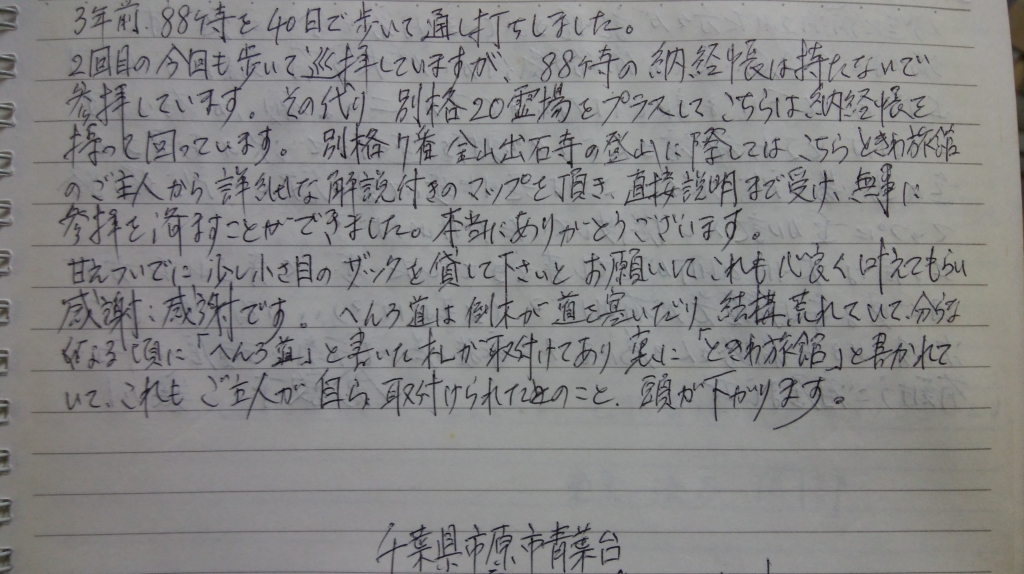 3年前 88ヶ寺を40日で歩いて通し打ちしました。
2回目の今回も歩いて巡拝していますが、88ヶ寺の納経帳は持たないで
参拝しています。その代り 別格20霊場をプラスして こちらは納経帳を
持って回っています。 別格7番 金山出石寺の登山に際しては こちらときわ旅館
のご主人から、詳細な解説付きのマップを頂き、直接説明まで受け、無事に
参拝を済ますことができました。本当にありがとうございます。
甘えついでに 少し小さ目のザックを貸して下さいと お願いして、これも心良く叶えてもらい
感謝、感謝です。 へんろ道は倒木が道を塞いだり、結構荒れていて、分らな
くなる頃に「へんろ道」と書いた札が取付けてあり 裏に「ときわ旅館」と書かれて
いて、これもご主人が自ら取付けられたとのこと、頭が下がります。
千葉県市原市青葉台